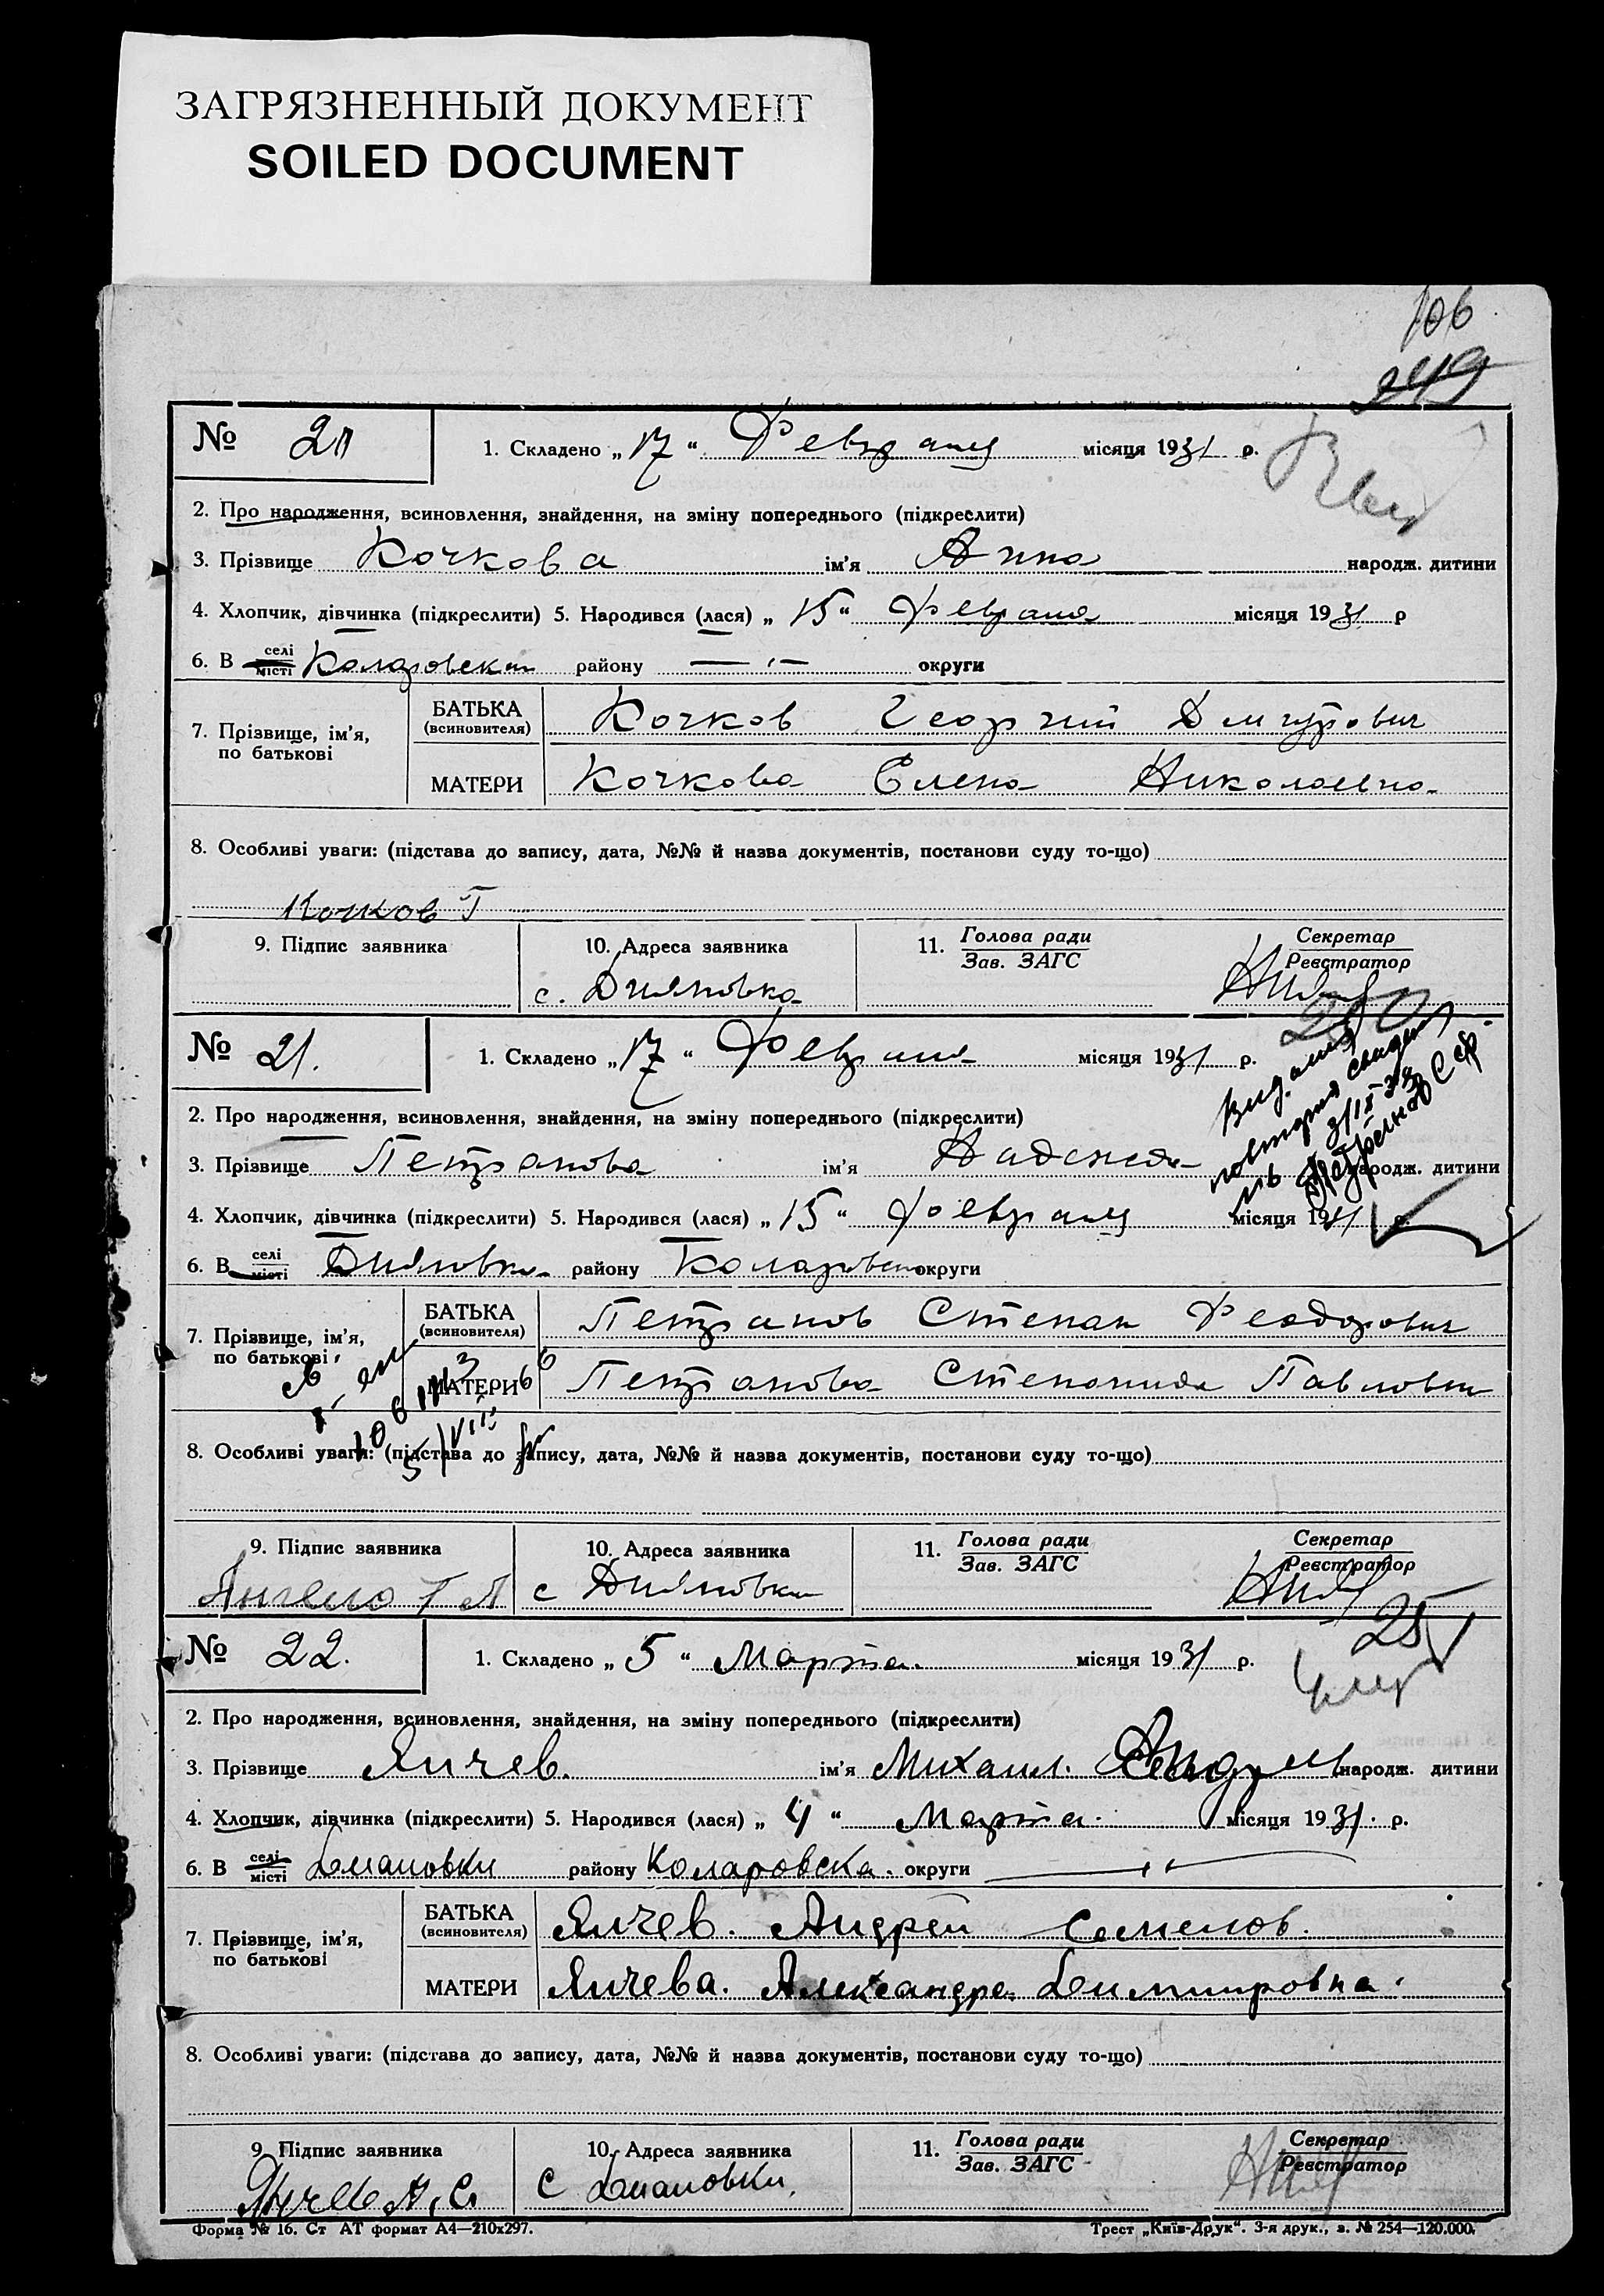 ЗАГРЯЗНЕННЫЙ ДОКУМЕНТ
SOILED DOCUMENT
106
249
№ 20 1. Складено „17“ Февраля місяця 1931 р.
2. Про народження, всиновлення, знайдення, на зміну попереднього (підкреслити)
3. Прізвище Кочкова ім'я Анна народж. дитини
4. Хлопчик, дівчинка (підкреслити) 5. Народився (лася) „15“ Февраля місяця 1931 р
6. В селі місті Коларовский району —"— округи
7. Прізвище, ім'я, по батькові
БАТЬКА (всиновителя) Кочков Георгий Дмитрович
МАТЕРИ Кочкова Елена Николаевна
8. Особливі уваги: (підстава до запису, дата, №№ й назва документів, постанови суду то-що)
Кочков Г
9. Підпис заявника 10. Адреса заявника 11. Голова ради Зав. ЗАГС Секретар Реєстратор
с. Дияновка
250
№ 21. 1. Складено „17“ Февраля місяця 1931 р.
2. Про народження, всиновлення, знайдення, на зміну попереднього (підкреслити)
3. Прізвище Петранова ім'я Надежда народж. дитини
4. Хлопчик, дівчинка (підкреслити) 5. Народився (лася) „15“ Февраля місяця 1931 р
6. В селі місті Дияновка району Коларовский округи
7. Прізвище, ім'я, по батькові
БАТЬКА (всиновителя) Петранов Степан Феодорович
МАТЕРИ Петранова Степанида Павловна
8. Особливі уваги: (підстава до запису, дата, №№ й назва документів, постанови суду то-що)
9. Підпис заявника 10. Адреса заявника 11. Голова ради Зав. ЗАГС Секретар Реєстратор
с Дияновка
251
№ 22. 1. Складено „5“ Марта. місяця 1931 р.
2. Про народження, всиновлення, знайдення, на зміну попереднього (підкреслити)
3. Прізвище Янчев. ім'я Михаил. народж. дитини
4. Хлопчик, дівчинка (підкреслити) 5. Народився (лася) „4“ Марта. місяця 1931. р.
6. В селі місті Диановки району Коларовска. округи —"—
7. Прізвище, ім'я, по батькові
БАТЬКА (всиновителя) Янчев. Андрей Семенов.
МАТЕРИ Янчева. Александра Димитровна.
8. Особливі уваги: (підстава до запису, дата, №№ й назва документів, постанови суду то-що)
9. Підпис заявника 10. Адреса заявника 11. Голова ради Зав. ЗАГС Секретар Реєстратор
Янчев А. С. с Диановки.
Форма № 16. Ст АТ формат А4—210х297. Трест „Київ-Друк“. 3-я друк., з. № 254—120.000.